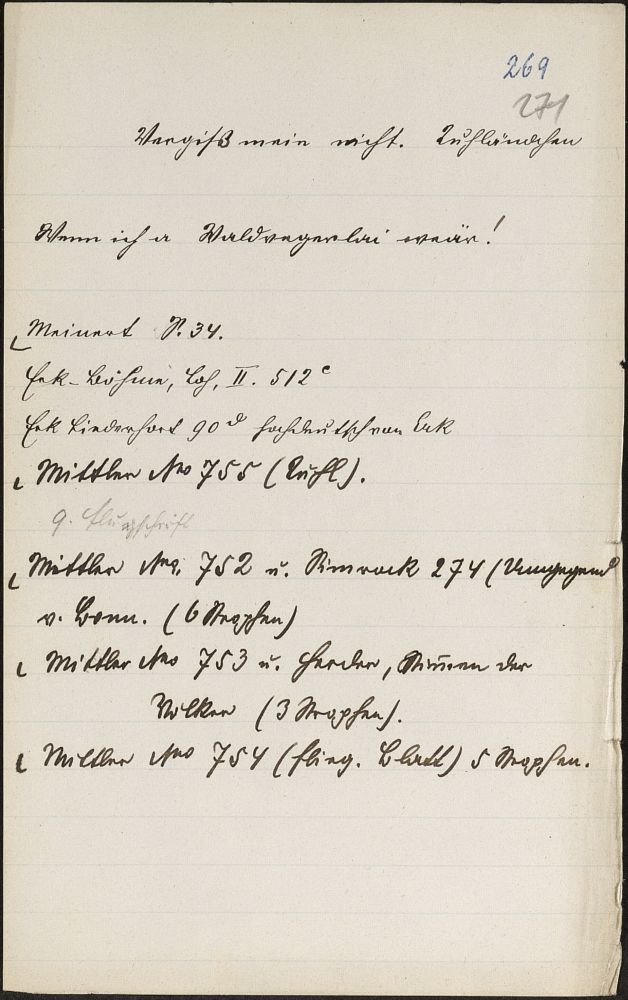 269
271
Vergiß mein nicht. Kuhländchen
Wenn ich a Waldvegerlai weär!
Meinert S. 34.
Erk-Böhme, Lh. II. 512c
Erk Liederhort 90d hochdeutsch von Erk
Mittler No 755 (Kuhl).
g. Flugschrift
Mittler No. 752 u. Simrock 274 (Umgegend
v. Bonn. (6 Strophen)
Mittler No 753 u. Herder, Stim̄en der
Völker (3 Strophen).
Mittler No 754 (flieg. Blatt) 5 Strophen.